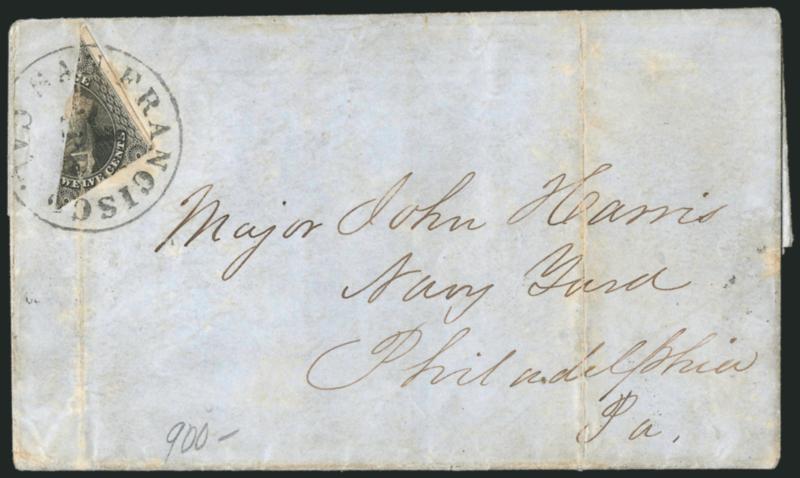 SAN FRANCISCO
CAL.
TWELVE CENTS
Major John Harris
Navy Yard
Philadelphia
Pa.
900-